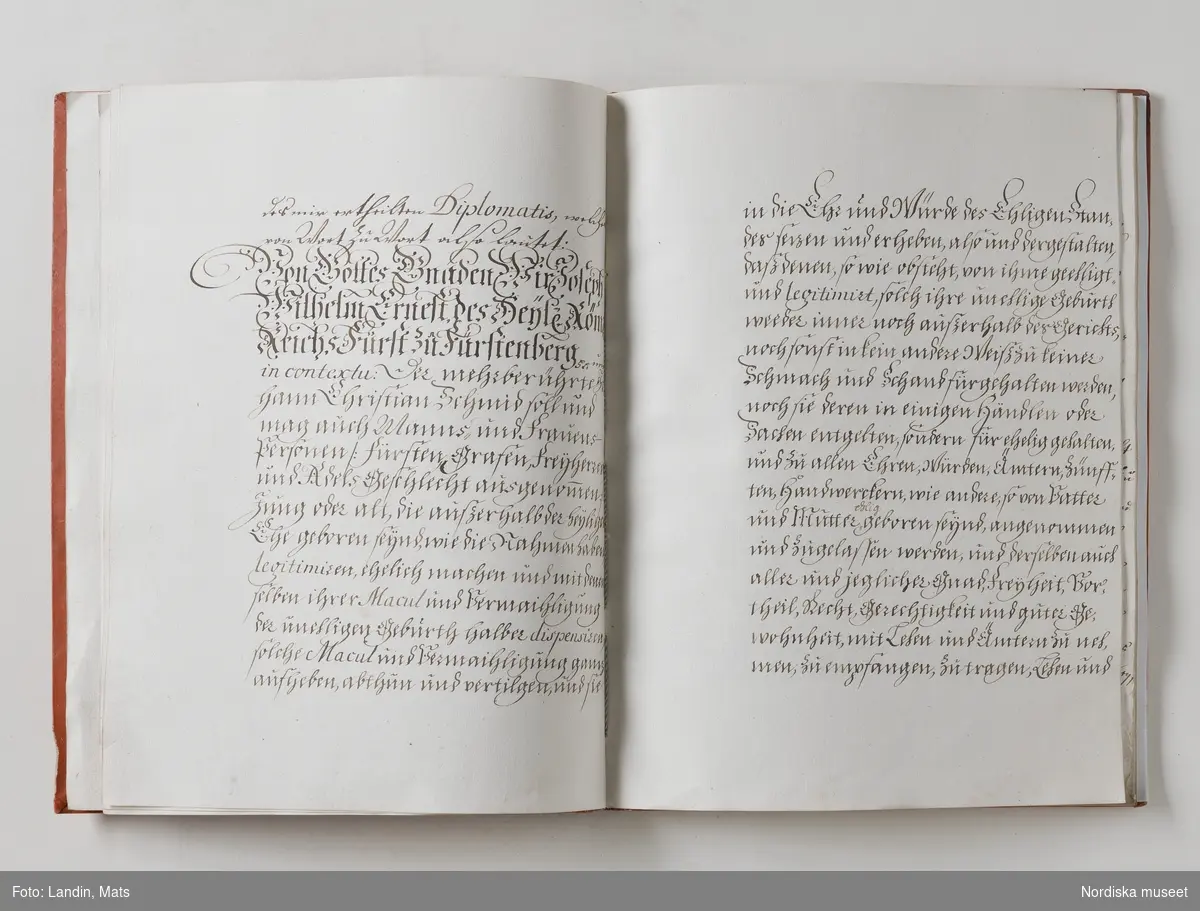 des mir ertheilten Diplomatis, welche
von Wort zu Wort also lautet:
Von Gottes Gnaden Wir Joseph
Wilhelm Ernest, des Heyl: Röm:
Reichs Fürst zu Fürstenberg
in contextu: Der mehrberührte
hann Christian Schmid soll und
mag auch Manns- und Frauens-
Persönen /: Fürsten, Grafen, Freyherren
und Adels Geschlecht ausgenom̄en:
Jung oder alt, die außerhalb der heyligen
Ehe geboren seynd, wie die Nahmen haben
legitimiren, ehelich machen und mit den
selben ihrer Macul und Vermaihligung
der unelligen Gebürth halber dispensiren
solche Macul und Vermaihligung ganz
aufheben, abthun und vertilgen, und sie
in die Ehr und Würde des Ehligen Stan,
des sezen und erheben, also und dergestalten,
daß denen, so wie obsteht, von ihme geelligt
und legitimirt, solch ihre unellige Gebürth
weeder inner noch außerhalb des Gerichts,
noch sonst in kein andere Weiß zu keiner
Schmach und Schand fürgehalten werden,
noch sie deren in einigen Händlen oder
Sachen entgelten, sondern für ehelig gehalten,
und zu allen Ehren, Würden, Ämtern, Zünff-
ten, Handwerckern, wie andere, so von Vatter
und Mutter ehlig geboren seynd, angenommen
und zugelassen werden, und derselben auch
aller und jeglicher Gnad, Freyheit, Vor-
theil, Recht, Gerechtigkeit und guter Ge,
wohnheit, mit Lehen und Ämtern zu neh,
men, zu empfangen, zu tragen, Lehen und
Foto: Landin, Mats
Nordiska museet